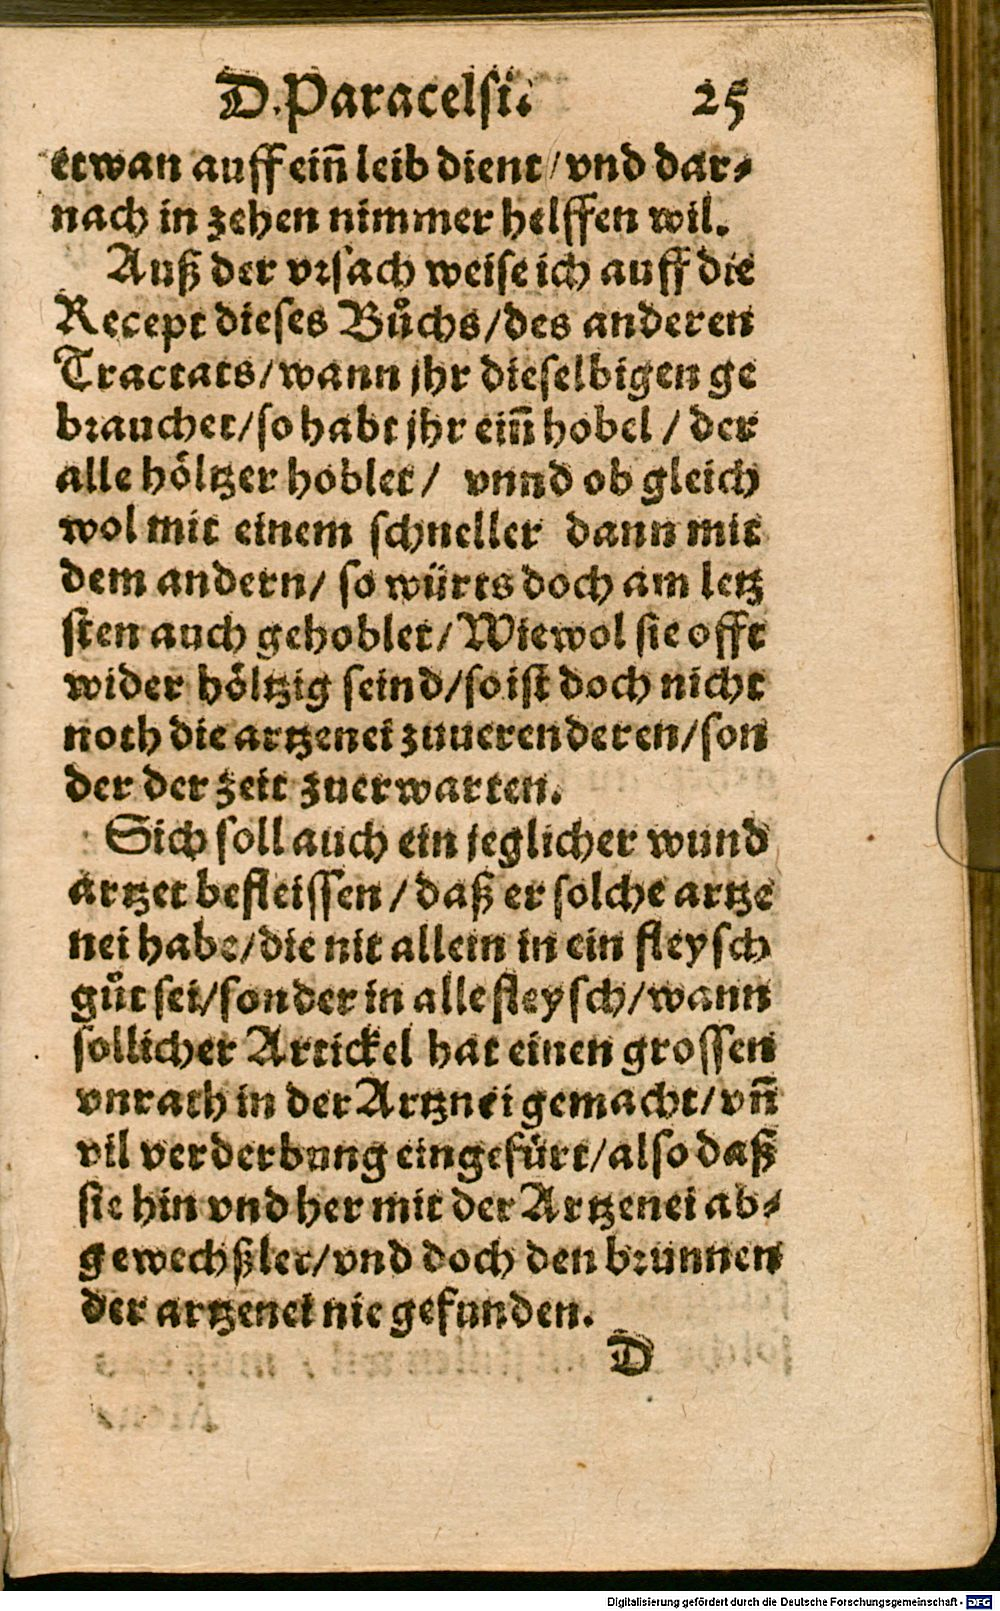 D. Paracelsi. 25
etwan auff ein̄ leib dient/ vnd dar⸗
nach in zehen nimmer helffen wil.
Auß der vrsach weise ich auff die
Recept dieses Bůchs/des anderen
Tractats/wann jhr dieselbigen ge
brauchet/so habt jhr ein̄ hobel / der
alle höltzer hoblet / vnnd ob gleich
wol mit einem schneller dann mit
dem andern/ so würts doch am letz
sten auch gehoblet/ Wiewol sie offt
wider höltzig seind/so ist doch nicht
noth die artzenei zuuerenderen/son
der der zeit zuerwarten.
Sich soll auch ein jeglicher wund
artzet befleissen / daß er solche artze
nei habe/die nit allein in ein fleysch
gůt sei/sonder in alle fleysch/wann
sollicher Artickel hat einen grossen
vnrath in der Artznei gemacht/ vn̄
vil verderbung eingefürt/also daß
sie hin vnd her mit der Artzenei ab⸗
gewechßlet/vnd doch den brunnen
der artzenei nie gefunden.
D
Digitalisierung gefördert durch die Deutsche Forschungsgemeinschaft - DFG